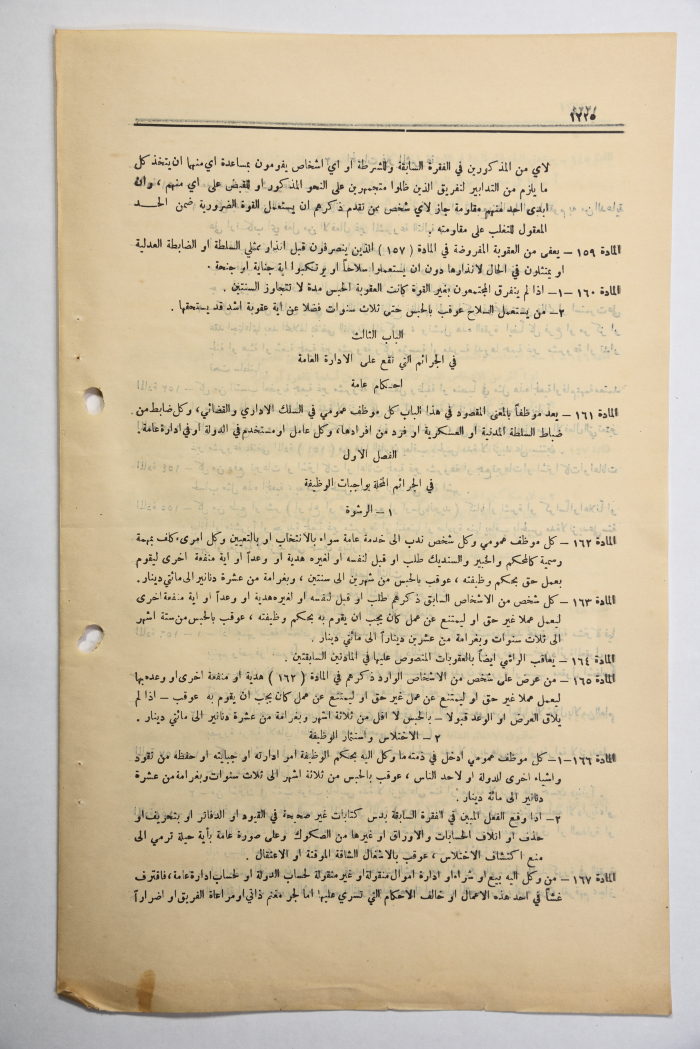 ١٢٢٥
لاي من المذكورين في الفقرة السابقة وللشرطة او اي اشخاص يقومون بمساعدة اي منهما ان يتخذ كل
ما يلزم من التدابير لتفريق الذين ظلوا متجمهرين على النحو المذكور او للقبض على اي منهم ، وان
ابدى احد منهم مقاومة جاز لاي شخص ممن تقدم ذكرهم ان يستعمل القوة الضرورية ضمن الحد
المعقول للتغلب على مقاومته .
المادة ١٥٩ – يعفى من العقوبة المفروضة في المادة ( ١٥٧ ) الذين ينصرفون قبل انذار ممثلي السلطة او الضابطة العدلية
او يمتثلون في الحال لانذارها دون ان يستعملوا سلاحاً او يرتكبوا اية جناية او جنحة .
المادة ١٦٠ –١– اذا لم يتفرق المجتمعون بغير القوة كانت العقوبة الحبس مدة لا تتجاوز السنتين .
٢– من يستعمل السلاح عوقب بالحبس حتى ثلاث سنوات فضلا عن اية عقوبة اشد قد يستحقها .
الباب الثالث
في الجرائم التي تقع على الادارة العامة
احكام عامة
المادة ١٦١ – يعد موظفاً بالمعنى المقصود في هذا الباب كل موظف عمومي في السلك الاداري والقضائي ، وكل ضابط من
ضباط السلطة المدنية او العسكرية او فرد من افرادها ، وكل عامل او مستخدم في الدولة او في ادارة عامة .
الفصل الاول
في الجرائم المخلة بواجبات الوظيفة
١ – الرشوة
المادة ١٦٢ – كل موظف عمومي وكل شخص ندب الى خدمة عامة سواء بالانتخاب او بالتعيين وكل امرىء كلف بمهمة
رسمية كالمحكم والخبير والسنديك طلب او قبل لنفسه او لغيره هدية او وعداً او اية منفعة اخرى ليقوم
بعمل حق بحكم وظيفته ، عوقب بالحبس من شهرين الى سنتين ، وبغرامة من عشرة دنانير الى مائتي دينار .
المادة ١٦٣ – كل شخص من الاشخاص السابق ذكرهم طلب او قبل لنفسه او لغيره هدية او وعداً او اية منفعة اخرى
ليعمل عملا غير حق او ليمتنع عن عمل كان يجب ان يقوم به بحكم وظيفته ، عوقب بالحبس من ستة اشهر
الى ثلاث سنوات وبغرامة من عشرين ديناراً الى مائتي دينار .
المادة ١٦٤ – يعاقب الراشي ايضاً بالعقوبات المنصوص عليها في المادتين السابقتين .
المادة ١٦٥ – من عرض على شخص من الاشخاص الوارد ذكرهم في المادة ( ١٦٢ ) هدية او منفعة اخرى او وعده بها
ليعمل عملا غير حق او ليمتنع عن عمل كان يجب ان يقوم به عوقب – اذا لم
يلاق العرض او الوعد قبولا – بالحبس لا اقل من ثلاثة اشهر وبغرامة من عشرة دنانير الى مائتي دينار .
٢ – الاختلاس واستثمار الوظيفة
المادة ١٦٦ –١– كل موظف عمومي ادخل في ذمته ما وكل اليه بحكم الوظيفة امر ادارته او جبايته او حفظه من نقود
واشياء اخرى للدولة او لاحد الناس ، عوقب بالحبس من ثلاثة اشهر الى ثلاث سنوات وبغرامة من عشرة
دنانير الى مائة دينار .
٢– اذا وقع الفعل المبين في الفقرة السابقة بدس كتابات غير صحيحة في القيود او الدفاتر او بتحريف او
حذف او اتلاف الحسابات والاوراق او غيرها من الصكوك وعلى صورة عامة بأية حيلة ترمي الى
منع اكتشاف الاختلاس ، عوقب بالاشغال الشاقة المؤقتة او الاعتقال .
المادة ١٦٧ – من وكل اليه بيع او شراء او ادارة اموال منقولة او غير منقولة لحساب الدولة او لحساب ادارة عامة ، فاقترف
غشاً في احد هذه الاعمال او خالف الاحكام التي تسري عليها اما لجر مغنم ذاتي او مراعاة الفريق او اضراراً